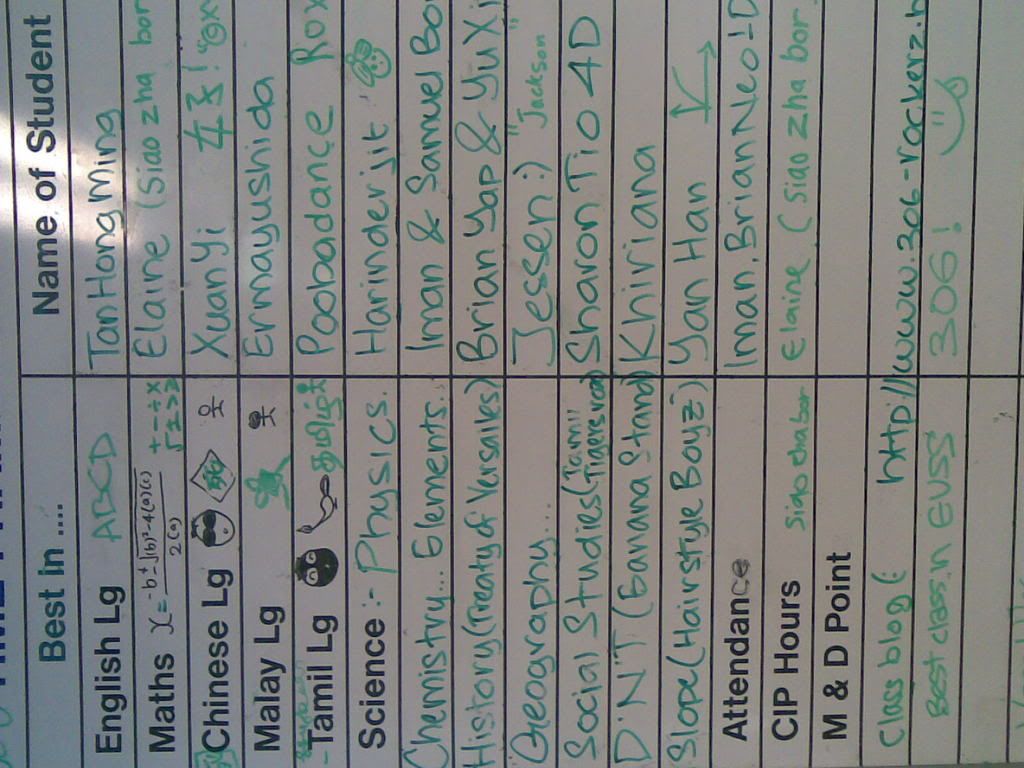 Best in .... Name of Student
English Lg ABCD Tan Hong Ming
Maths x = -b ± √(b)²-4(a)(c) / 2(a) + - ÷ × √ ± > ≥ Elaine (Siao zha bor
Chinese Lg Xuan Yi
Malay Lg Ermayushida
Tamil Lg தமிழ் Poobadance Rox
Science :- Physics. Harinderjit
Chemistry... Elements.. Iman & Samuel Bo
History (Treaty of Versailles) Brian Yap & Yu Xi
Geography... Jessen :) "Jackson"
Social Studies (Tamil Tigers
D'NT (Banana Stand) Khiriana
Sharon Tio 4D
Slope (Hairstyle Boyz) Yan Han
Attendance Iman, Brian Neo! - D
CIP Hours Siao cha bor Elaine (Siao zha bor
M & D Point
Class blog (: http://www.306-rockerz.b
Best class in EVSS 306!